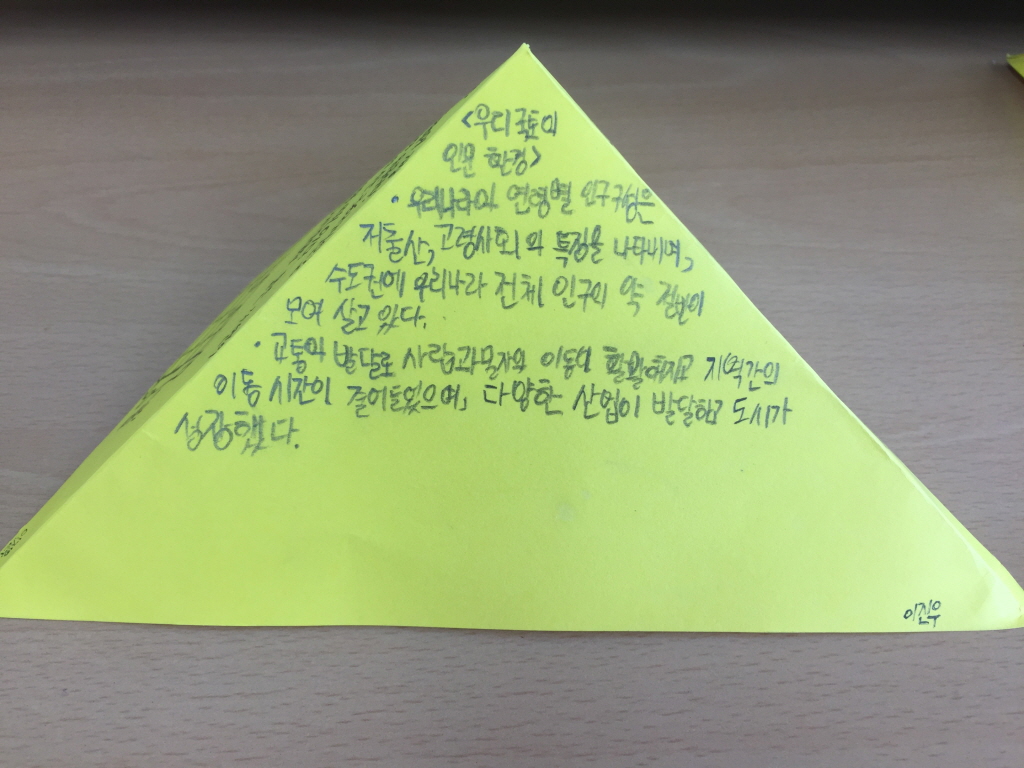 <우리 국토의
인문 환경>
· 우리나라의 연령별 인구구성은
저출산, 고령사회의 특징을 나타내며,
수도권에 우리나라 전체 인구의 약 절반이
모여 살고 있다.
· 교통의 발달로 사람과 물자의 이동이 활발해지고 지역간의
이동 시간이 줄어들었으며, 다양한 산업이 발달하고 도시가
성장했다.
이진우